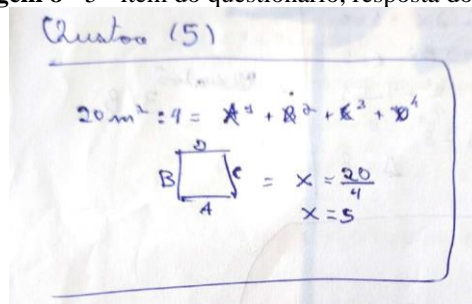 5º item do questionário, resposta do
Questão (5)
20 m² : 4 = A¹ + B² + C³ + D⁴
D
B C = x = 20/4
A x = 5